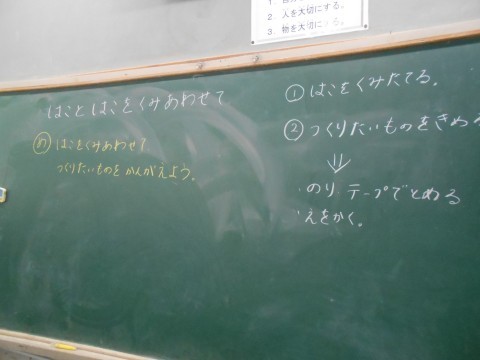 2. 人を大切にする。
3. 物を大切にする。
はことはこをくみあわせて
め はこをくみあわせて
つくりたいものをかんがえよう。
① はこをくみたてる。
② つくりたいものをきめる
⇓
・のり、テープでとめる
・えをかく。